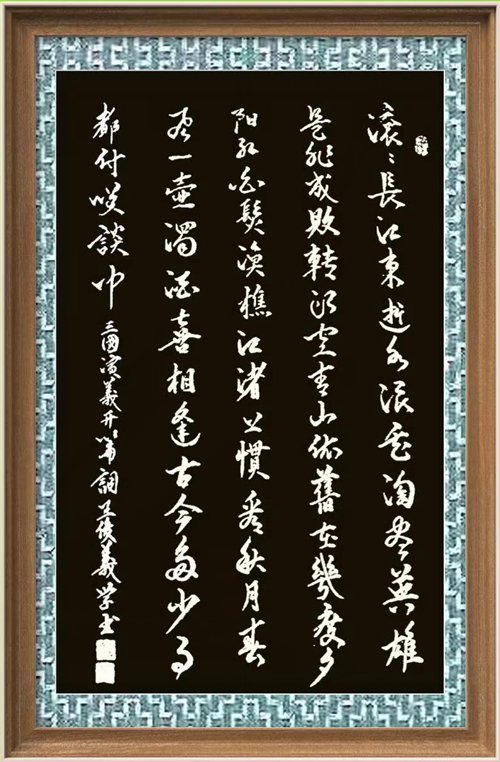 滚〻長江東逝水浪花淘尽英雄
是非成败转頭空青山依舊在幾度夕
阳红白髮渔樵江渚上惯看秋月春
风一壶濁酒喜相逢古今多少事
都付咲談中
三國演義开篇詞 王俊義学书